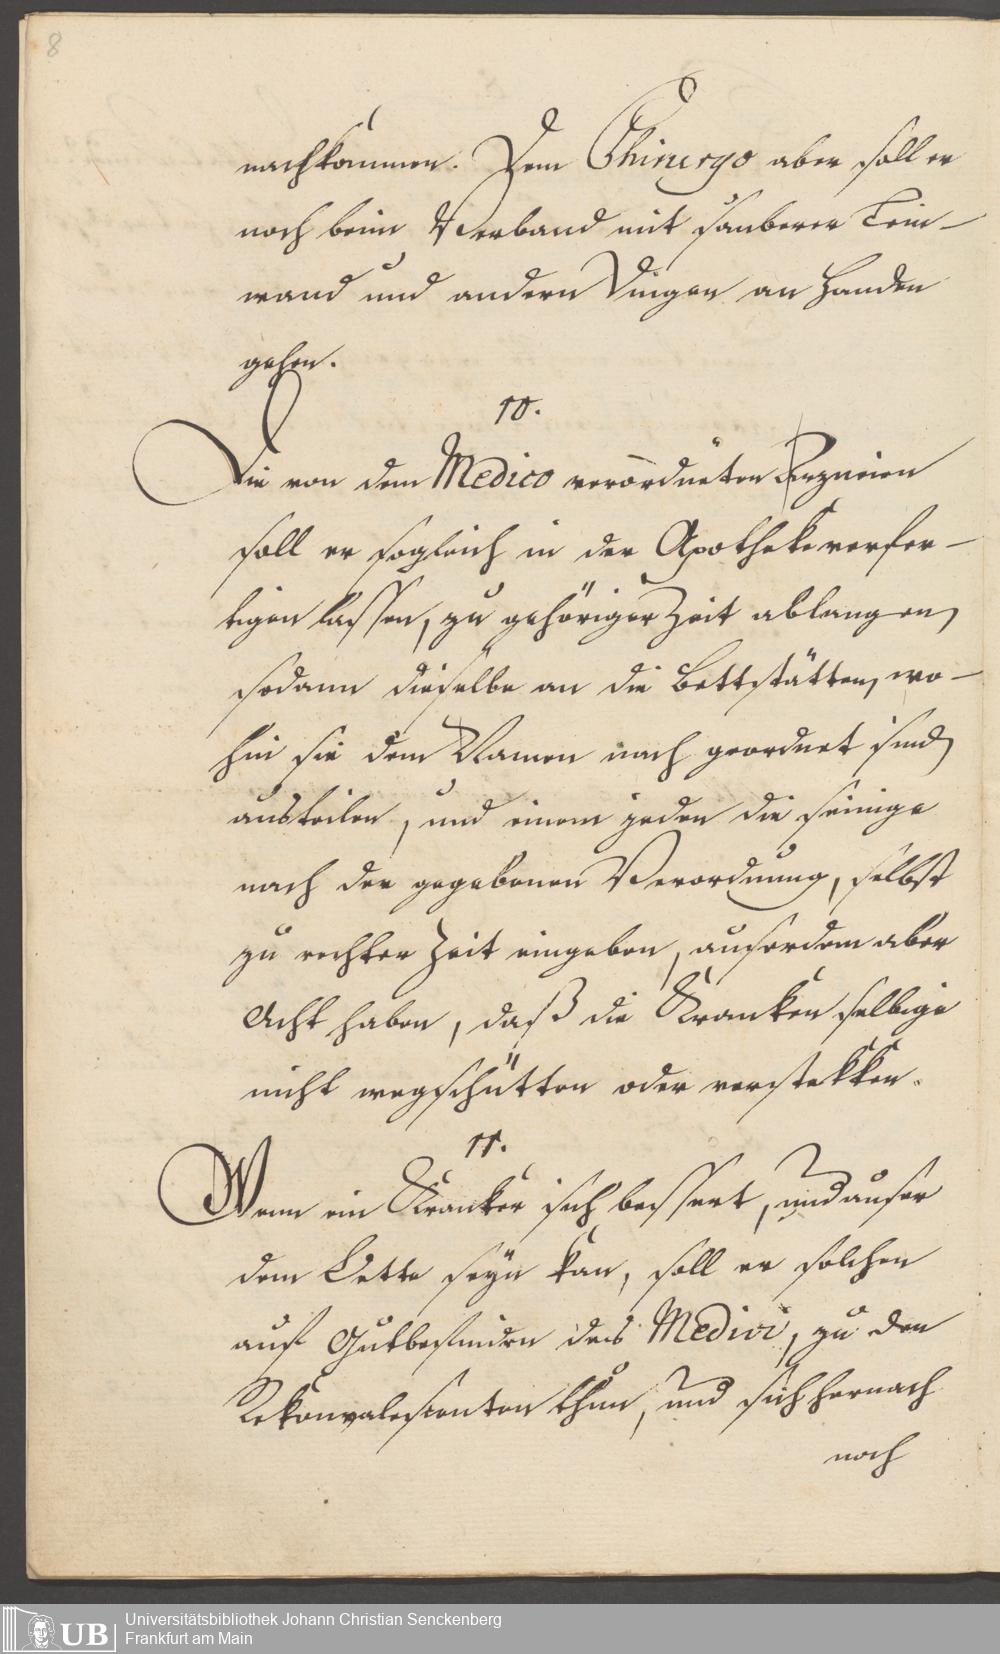 8
nachkommen. Dem Chirurgo aber soll er
noch beim Verband mit sauberer Lein-
wand und andern Dingen an Handen
gehen.
10.
Die von dem Medico verordneten Arzneien
soll er sogleich in der Apotheke verfer-
tigen lassen, zu gehöriger Zeit ablangen,
sodann dieselbe an die Bettstätten, wo-
hin sie dem Namen nach geordnet sind,
austeilen, und einem jeden die seinige
nach der gegebenen Verordnung, selbst
zu rechter Zeit eingeben, auserdem aber
Acht haben, daß die Kranken selbige
nicht wegschütten oder verstekken.
11.
Wenn ein Kranker sich bessert, und auser
dem Bette seyn kan, soll er solchen
auf Gutbefinden des Medici, zu den
Rekonvalescenten thun, und sich hernach
noch
UB
Universitätsbibliothek Johann Christian Senckenberg
Frankfurt am Main